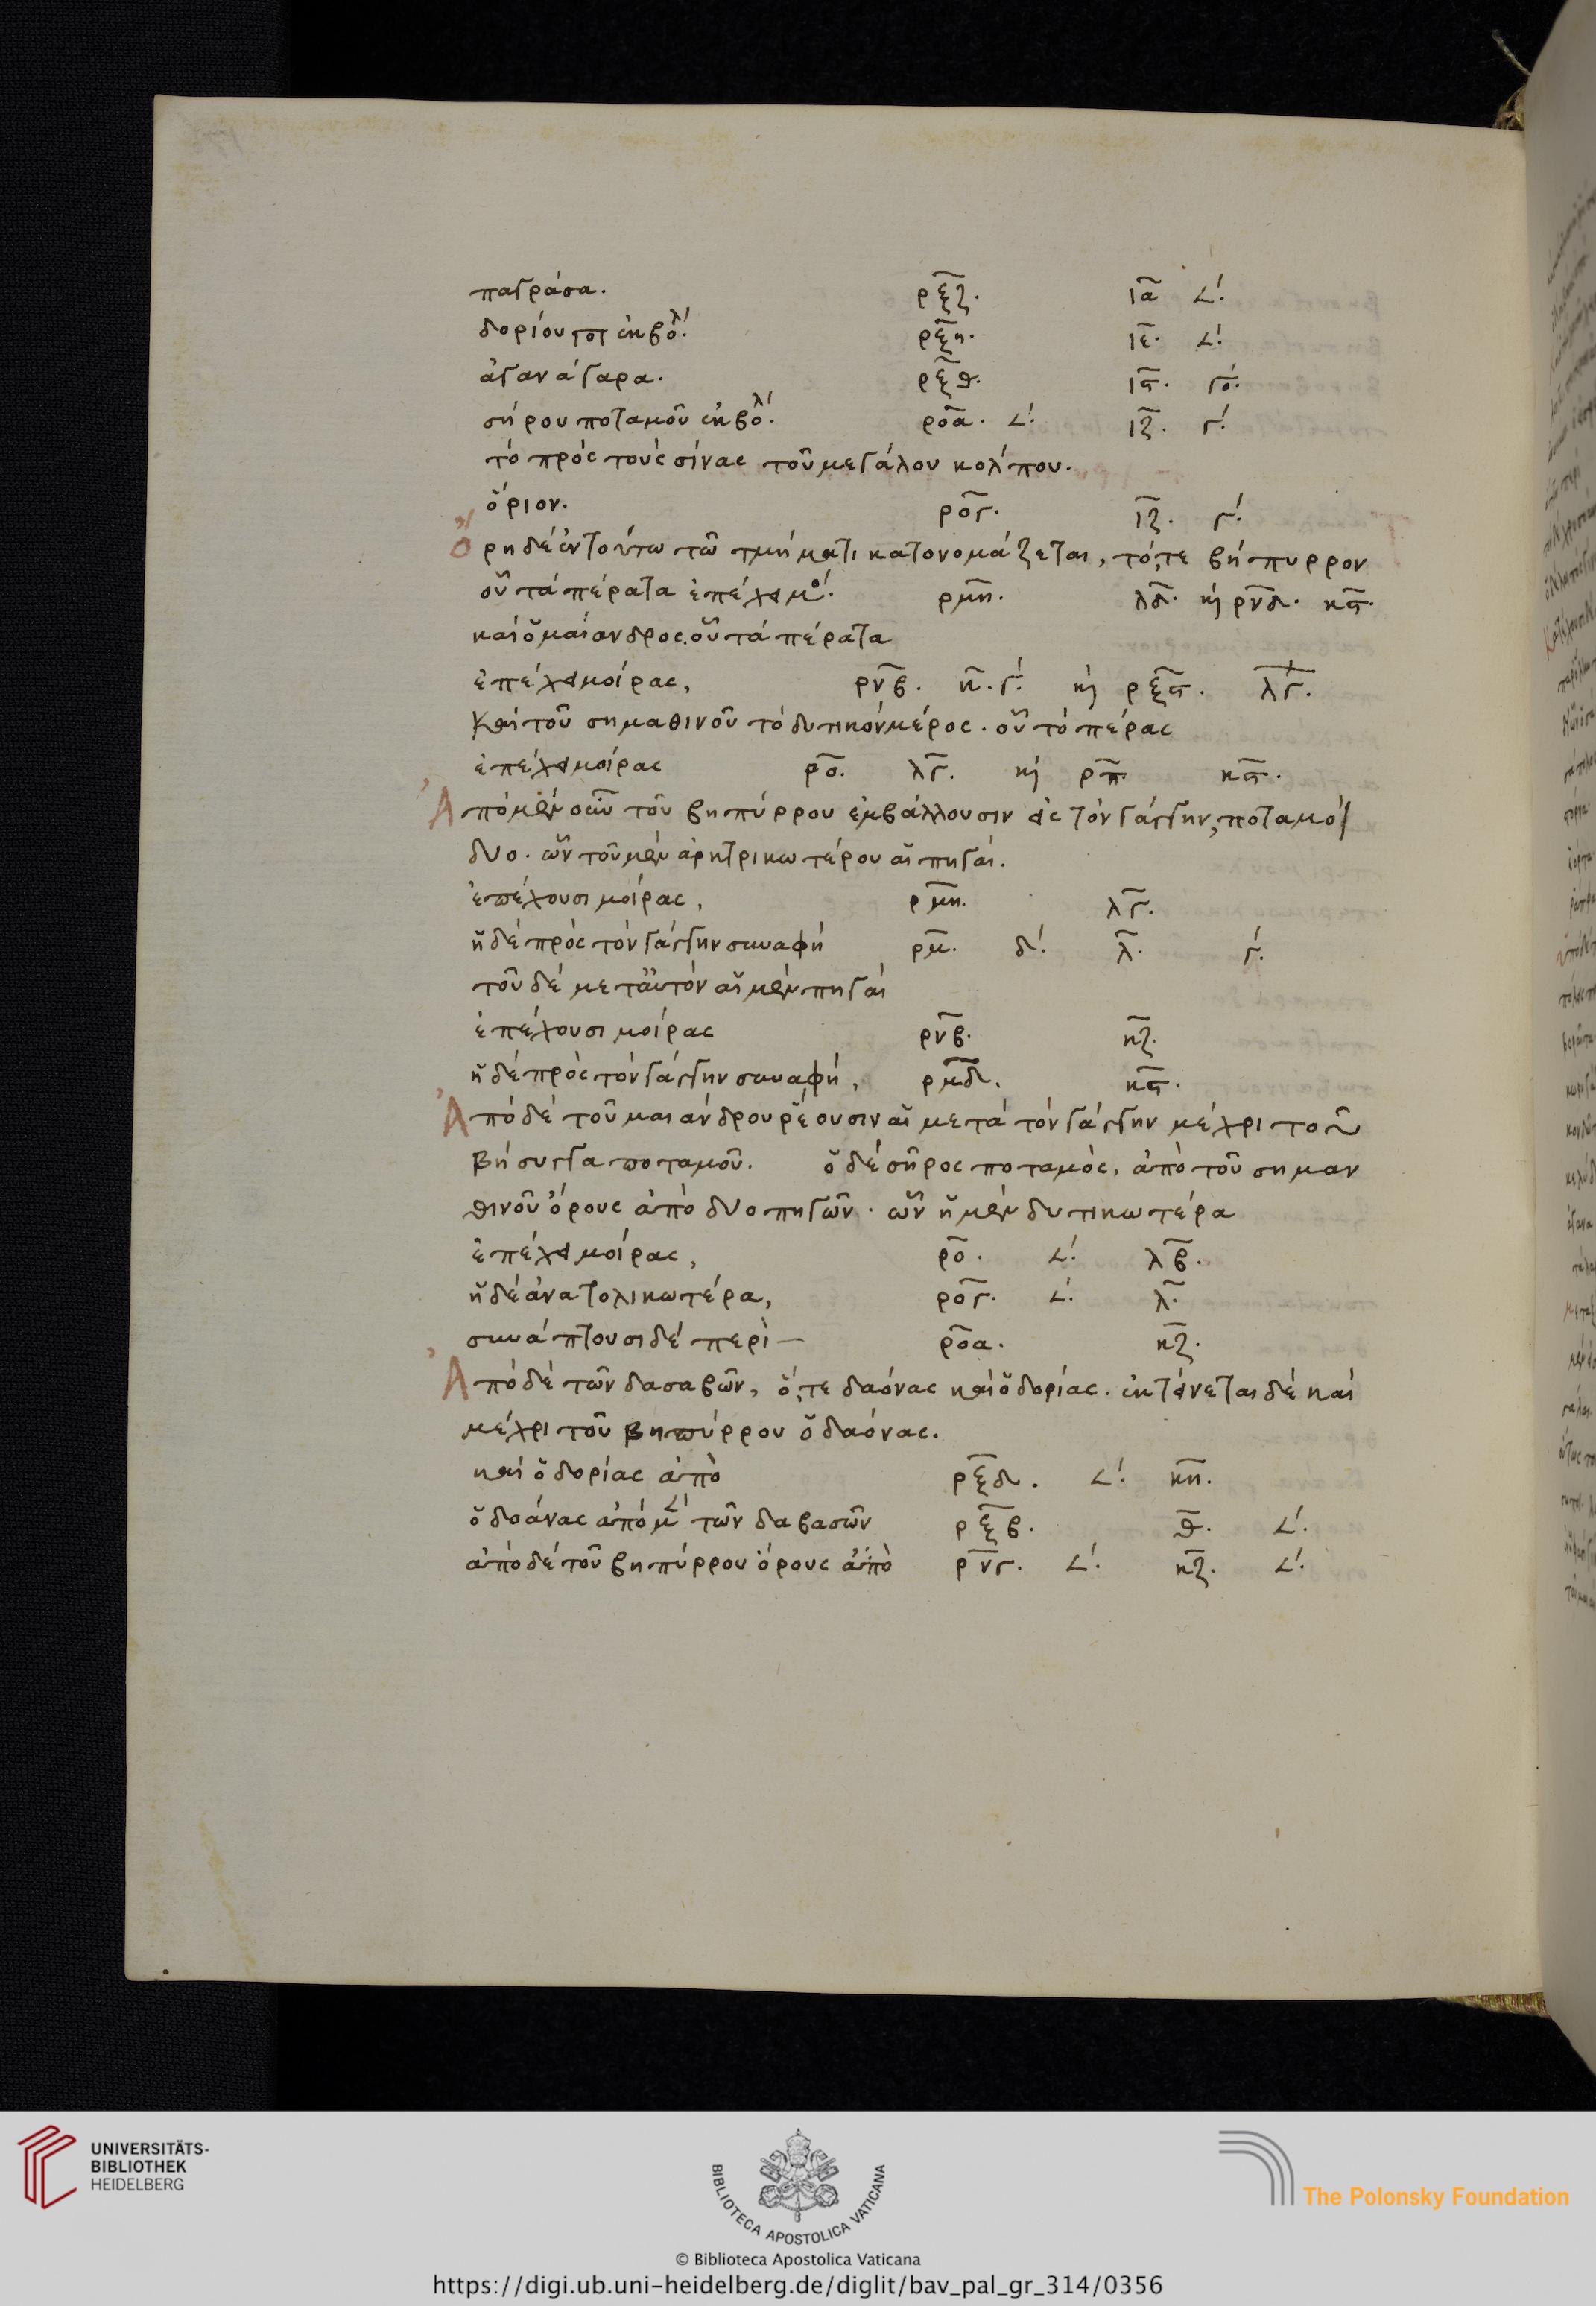 παγράσα. ρξζ. ια ∠΄.
δορίου ποτ ἐκβολ΄. ρξη. ιε. ∠΄.
ἀγανάγαρα. ρξθ. ις. γό.
σήρου ποταμοῦ ἐκβολ΄. ροα. ∠΄. ιζ. γ΄.
τό πρός τούς σίνας τοῦ μεγάλου κόλπου.
ὅριον. ρογ. ιζ. γ΄.
Ὄρη δέ ἐν τούτω τῶ τμήματι κατονομάζεται, τό, τε βήπυρρον
οὗ τά πέρατα ἐπέχει μο΄. ρμη. λδ. καὶ ρνδ. κς.
καί ὁ μαίανδρος. οὗ τά πέρατα
ἐπέχει μοίρας, ρνβ. κ. γ΄. καὶ ρξς. λγ.
Καί τοῦ σημαθινοῦ τό δυτικόν μέρος. οὗ τό πέρας
ἐπέχει μοίρας ρο. λγ. καὶ ρπ. κς.
Ἀπό μέν οὖν τοῦ βηπύρρου ἐμβάλλουσιν εἰς τόν γάγγην, ποταμοί
δύο. ὧν τοῦ μέν ἀρκτρικωτέρου αἱ πηγαί.
ἐπέχουσι μοίρας, ρμη. λγ.
ἡ δέ πρός τόν γάγγην συναφή ρμ. δ΄. λ. γ΄.
τοῦ δέ μετ' αὐτόν αἱ μέν πηγαί
ἐπέχουσι μοίρας ρνβ. κζ.
ἡ δέ πρός τόν γάγγην συναφή, ρμδ. κς.
Ἀπό δέ τοῦ μαιάνδρου ῥέουσιν αἱ μετά τόν γάγγην μέχρι τοῦ
βήσυγγα ποταμοῦ. ὁ δέ σῆρος ποταμός, ἀπό τοῦ σημαν
θινοῦ ὄρους ἀπό δύο πηγῶν. ὧν ἡ μέν δυτικωτέρα
ἐπέχει μοίρας, ρο. ∠΄. λβ.
ἡ δέ ἀνατολικωτέρα, ρογ. ∠΄. λ.
συνάπτουσι δέ περὶ – ροα. κζ.
Ἀπό δέ τῶν δασαβῶν, ὅ, τε δαόνας καί ὁ δορίας. ἐκτείνεται δέ καί
μέχρι τοῦ βηπύρρου ὁ δαόνας.
καί ὁ δορίας ἀπὸ ρξδ. ∠΄. κη.
ὁ δοάνας ἀπό μ τῶν δαβασῶν ρξβ. θ. ∠΄.
ἀπό δέ τοῦ βηπύρρου ὄρους ἀπὸ ρνγ. ∠΄. κζ. ∠΄.
UNIVERSITÄTS-
BIBLIOTHEK
HEIDELBERG
BIBLIOTECA APOSTOLICA VATICANA
The Polonsky Foundation
© Biblioteca Apostolica Vaticana
https://digi.ub.uni-heidelberg.de/diglit/bav_pal_gr_314/0356